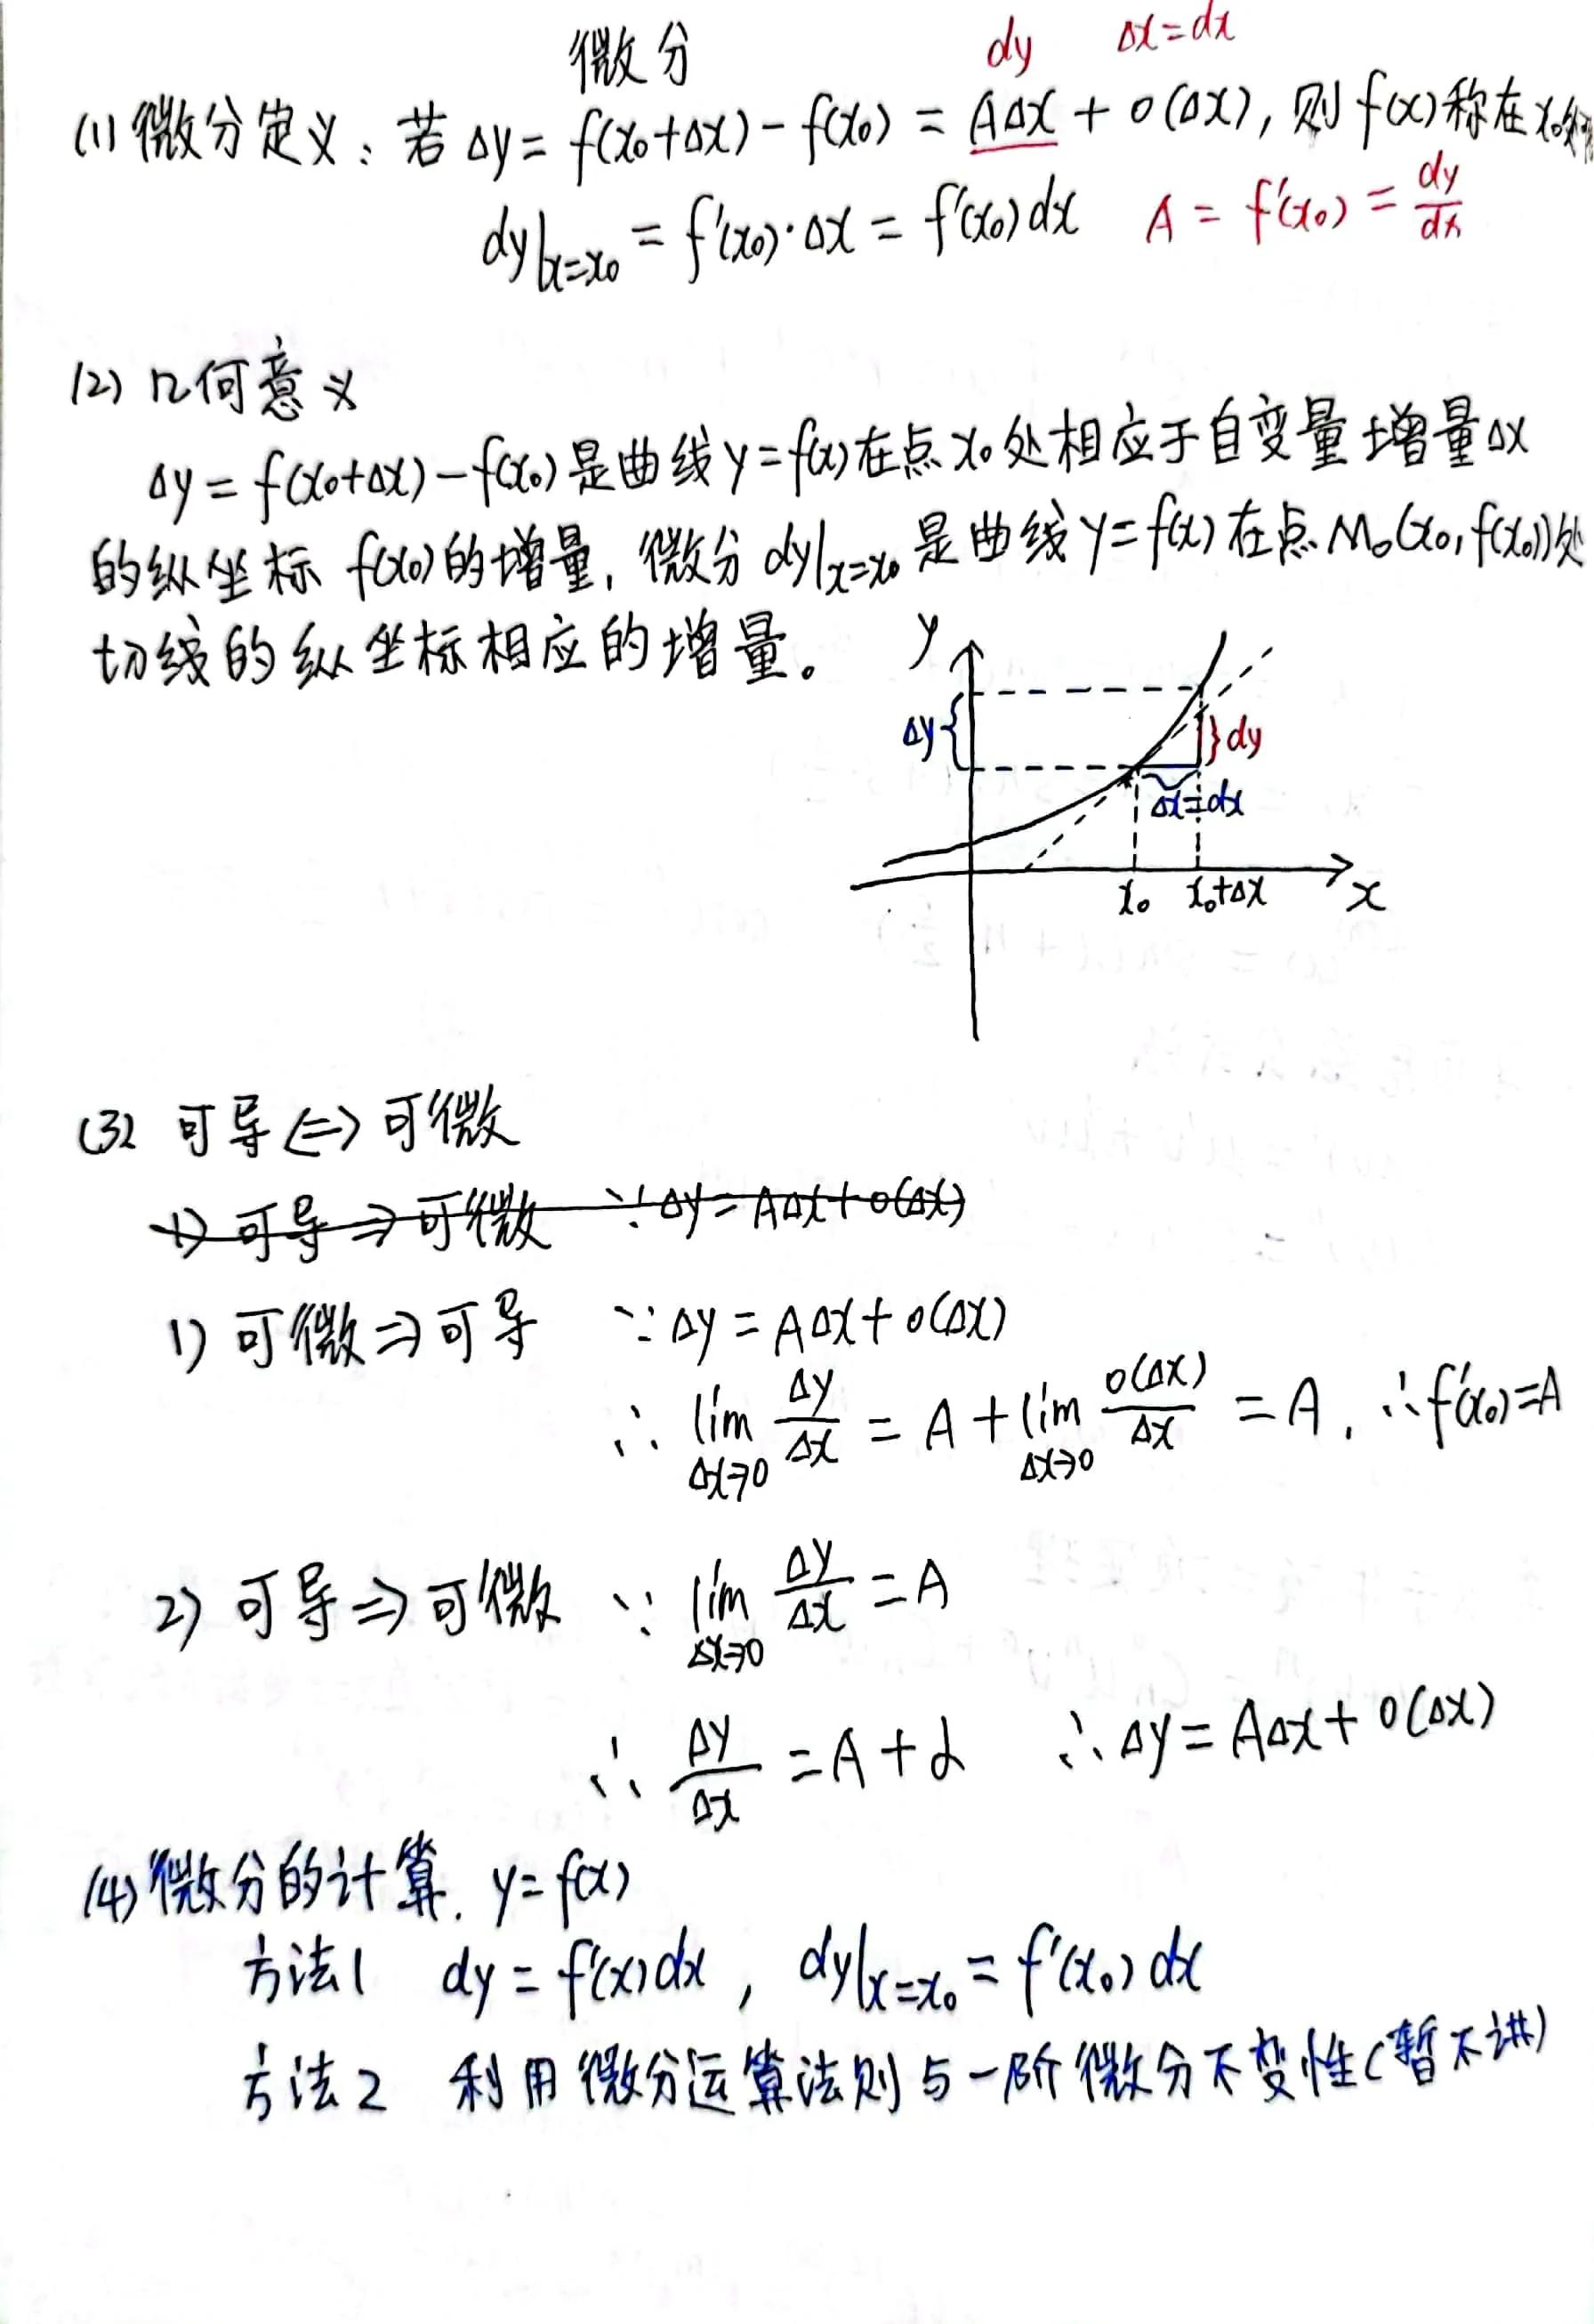 微分
dy Δx=dx
(1) 微分定义：若 Δy = f(x₀+Δx) - f(x₀) = AΔx + o(Δx), 则 f(x) 称在 x₀处
dy|x=x₀ = f'(x₀)·Δx = f'(x₀)dx A = f'(x₀) = dy/dx
(2) 几何意义
Δy = f(x₀+Δx) - f(x₀) 是曲线 y = f(x) 在点 x₀ 处相应于自变量增量 Δx
的纵坐标 f(x₀) 的增量, 微分 dy|x=x₀ 是曲线 y = f(x) 在点 M₀(x₀, f(x₀)) 处
切线的纵坐标相应的增量。
y
Δy { } dy
Δx=dx
x₀ x₀+Δx x
(3) 可导 <=> 可微
1) 可导 => 可微 ∵ Δy = AΔx + o(Δx)
1) 可微 => 可导 ∵ Δy = AΔx + o(Δx)
∴ lim Δx→0 Δy/Δx = A + lim Δx→0 o(Δx)/Δx = A, ∴ f'(x₀)=A
2) 可导 => 可微 ∵ lim Δx→0 Δy/Δx = A
∴ Δy/Δx = A + α ∴ Δy = AΔx + o(Δx)
(4) 微分的计算. y = f(x)
方法1 dy = f'(x)dx, dy|x=x₀ = f'(x₀)dx
方法2 利用微分运算法则与一阶微分不变性(暂不讲)